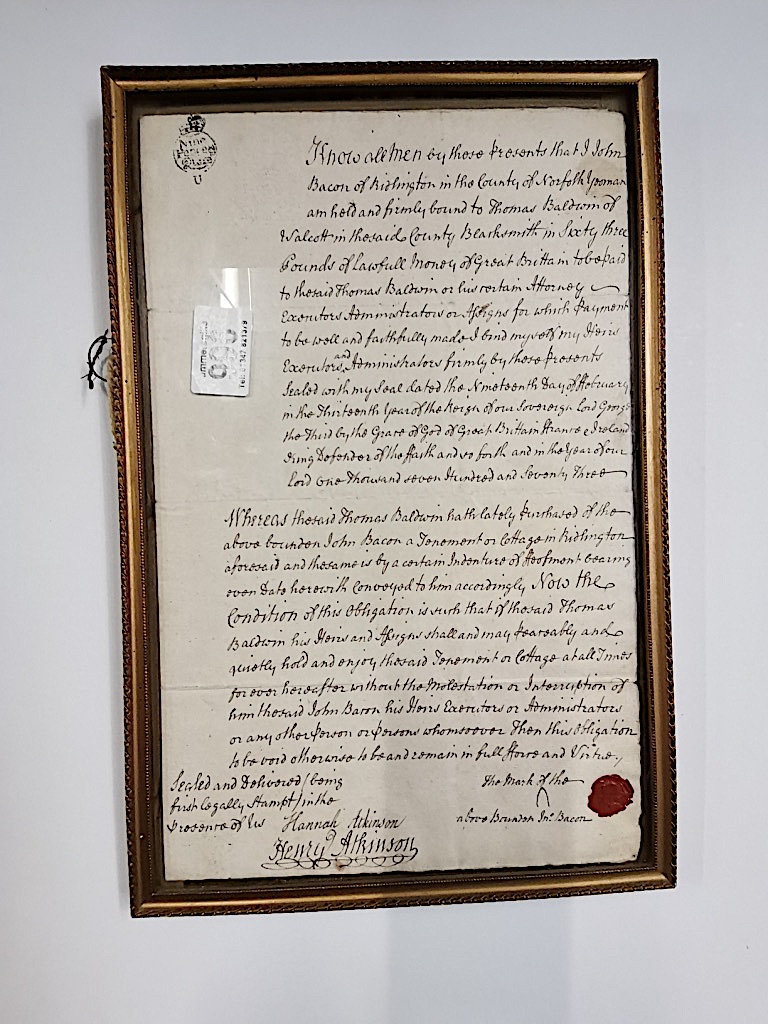 Know all Men by these Presents that I John
Bacon of Ridlington in the County of Norfolk Yeoman
am held and firmly bound to Thomas Baldwin of
Walcott in the said County Blacksmith in Sixty three
Pounds of Lawfull Money of Great Brittain to be paid
to the said Thomas Baldwin or his certain Attorney
Executors Administrators or Assigns for which Payment
to be well and faithfully made I bind myself my Heirs
Executors and Administrators firmly by these Presents
Sealed with my Seal dated the Nineteenth Day of February
in the Thirteenth Year of the Reign of our Sovereign Lord George
the Third by the Grace of God of Great Brittain France & Ireland
King Defender of the Faith and so forth and in the Year of our
Lord One Thousand seven Hundred and Seventy Three
Whereas the said Thomas Baldwin hath lately Purchased of the
above bounden John Bacon a Tenement or Cottage in Ridlington
aforesaid and the same is by a certain Indenture of Feofment bearing
even Date herewith Conveyed to him accordingly Now the
Condition of this Obligation is such that if the said Thomas
Baldwin his Heirs and Assigns shall and may Peaceably and
quietly hold and enjoy the said Tenement or Cottage at all Times
for ever hereafter without the Molestation or Interruption of
him the said John Bacon his Heirs Executors or Administrators
or any other Person or Persons whomsoever Then this Obligation
to be void otherwise to be and remain in full Force and Virtue
Sealed and Delivered (being
first Legally Stampt) in the
Presence of Us Hannah Atkinson
Henry Atkinson
The Mark of the
above Bounden Jno. Bacon